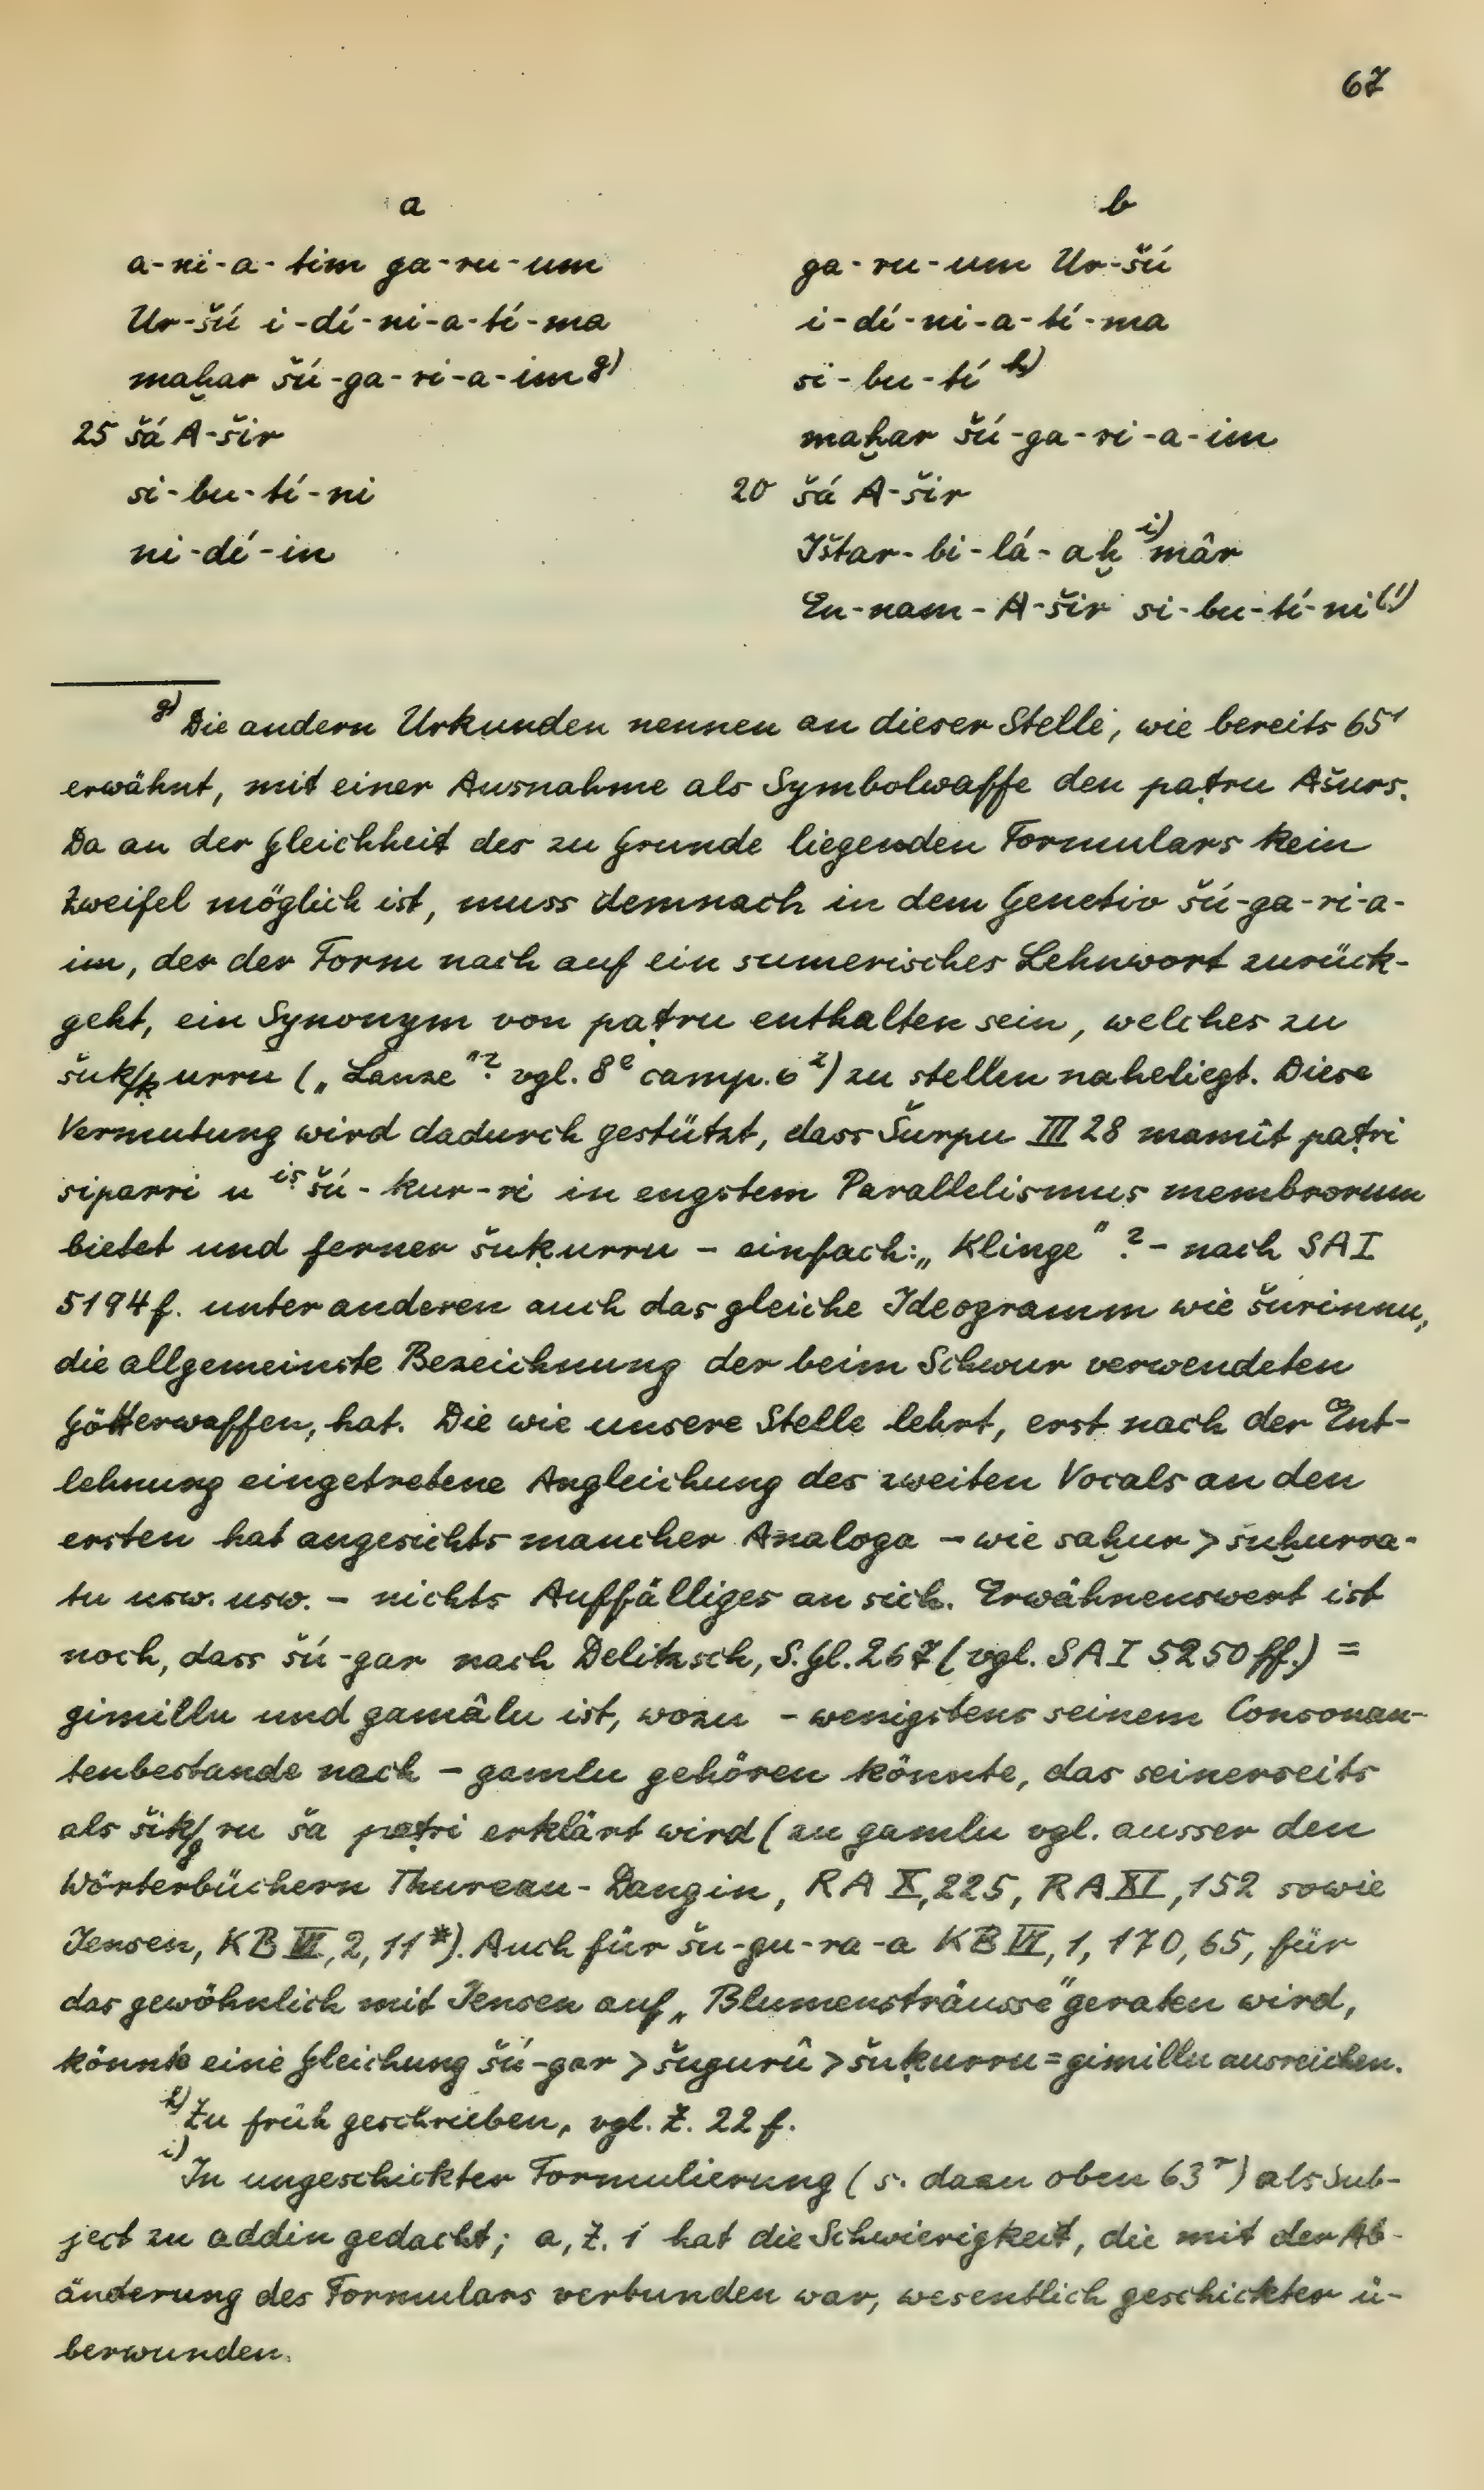 67
a
a-ni-a-tim ga-ru-um
Ur-šú i-dí-ni-a-tí-ma
maḫar šú-ga-ri-a-im g)
25 šá A-šir
si-bu-tí-ni
ni-dí-in
b
ga-ru-um Ur-šú
i-dí-ni-a-tí-ma
si-bu-tí h)
maḫar šú-ga-ri-a-im
20 šá A-šir
Ištar-bi-lá-aḫ i) mâr
En-nam-A-šir si-bu-tí-ni (!)
g) Die andern Urkunden nennen an dieser Stelle, wie bereits 65¹
erwähnt, mit einer Ausnahme als Symbolwaffe den paṭru Ašurs.
Da an der Gleichheit des zu Grunde liegenden Formulars kein
Zweifel möglich ist, muss demnach in dem Genetiv šú-ga-ri-a-
im, der der Form nach auf ein sumerisches Lehnwort zurück-
geht, ein Synonym von paṭru enthalten sein, welches zu
šuk/ḳurru („Lanze"? vgl. 8ᵉ camp. 6²) zu stellen naheliegt. Diese
Vermutung wird dadurch gestützt, dass Šurpu III 28 mamît paṭri
siparri u iṣ šú-kur-ri in engstem Parallelismus membrorum
bietet und ferner šuḳurru – einfach: „Klinge"? – nach SAI
5194f. unter anderen auch das gleiche Ideogramm wie šurinnu,
die allgemeinste Bezeichnung der beim Schwur verwendeten
Götterwaffen, hat. Die wie unsere Stelle lehrt, erst nach der Ent-
lehnung eingetretene Angleichung des zweiten Vocals an den
ersten hat angesichts mancher Analoga – wie saḫur > šuḫurra-
tu usw. usw. – nichts Auffälliges an sich. Erwähnenswert ist
noch, dass šú-gar nach Delitzsch, S.Gl. 267 (vgl. SAI 5250ff.) =
gimillu und gamâlu ist, wozu – wenigstens seinem Consonan-
tenbestande nach – gamlu gehören könnte, das seinerseits
als šik/gru ša paṭri erklärt wird (zu gamlu vgl. ausser den
Wörterbüchern Thureau-Dangin, RA X, 225, RA XI, 152 sowie
Jensen, KB VI, 2, 11*). Auch für šu-gu-ra-a KB VI, 1, 170, 65, für
das gewöhnlich mit Jensen auf „Blumensträusse" geraten wird,
könnte eine Gleichung šú-gar > šugurû > šuḳurru = gimillu ausreichen.
h) Zu früh geschrieben, vgl. Z. 22f.
i) In ungeschickter Formulierung (s. dazu oben 63ʳ) als Sub-
ject zu addin gedacht; a, Z. 1 hat die Schwierigkeit, die mit der Ab-
änderung des Formulars verbunden war, wesentlich geschickter ü-
berwunden.